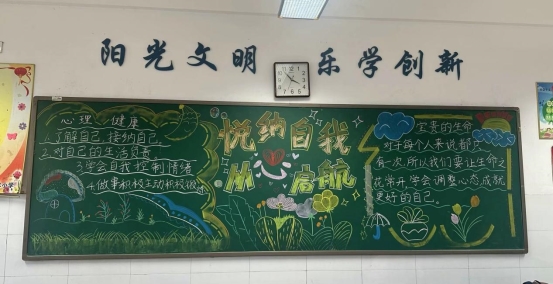 阳光文明 乐学创新
心理 健康
1.了解自己 接纳自己
2.对自己的生活负责
3.学会自我控制情绪
4.做事积极主动积极
悦纳自我
从心启航
宝贵的生命
对于每个人来说都只
有一次,所以我们要让生命之
花常开,学会调整心态成就
更好的自己。